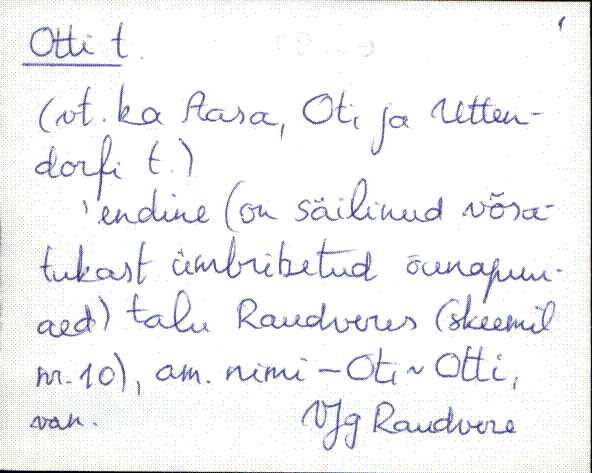 Otti t.
(vt. ka Aasa, Oti ja Utten-
dorfi t.)
'endine (on säilinud võsa-
tukast ümbritsetud õunapuu-
aed) talu Raudveres (skeemil
nr. 10), am. nimi – Oti ~ Otti,
van. VJg Raudvere